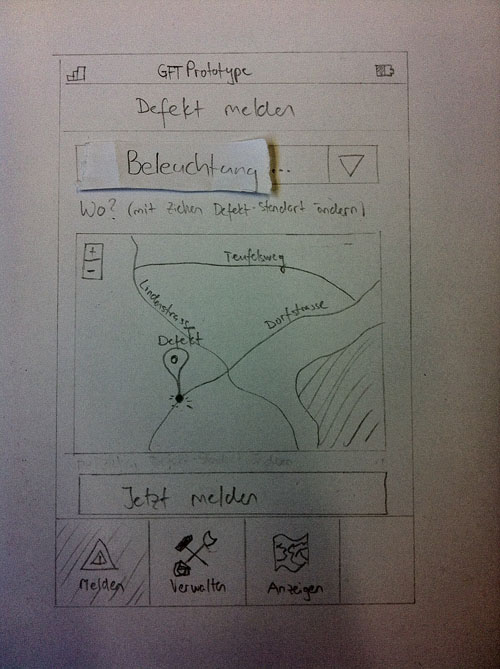 GFT Prototype
Defekt melden
Beleuchtung ...
Wo? (mit ziehen Defekt-Standort ändern)
+
-
Teufelsweg
Lindenstrasse
Dorfstrasse
Defekt
Jetzt melden
Melden
Verwalten
Anzeigen